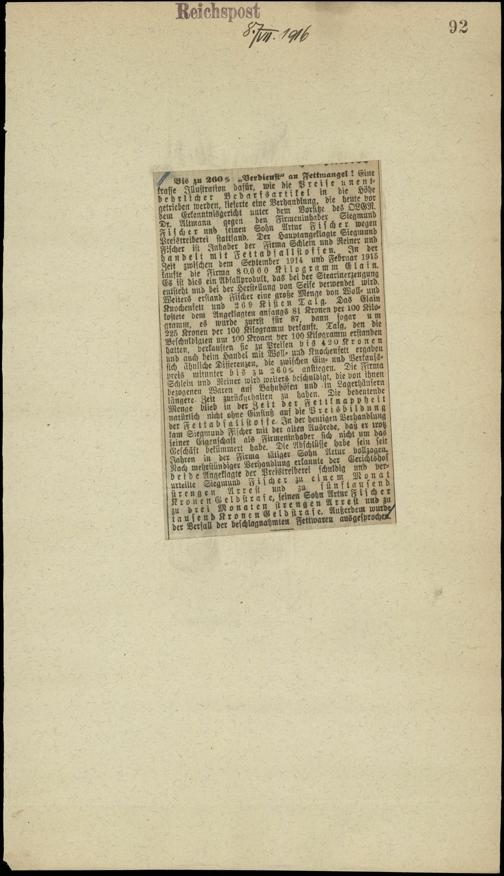 Reichspost
8./VII. 1916
92
Bis zu 260% „Verdienst“ an Fettmangel! Eine
krasse Illustration dafür, wie die Preise unent-
behrlicher Bedarfsartikel in die Höhe
getrieben werden, lieferte eine Verhandlung, die heute vor
dem Erkenntnisgericht unter dem Vorsitze des OLGR.
Dr. Altmann gegen den Firmeninhaber Siegmund
Fischer und seinen Sohn Artur Fischer wegen
Preistreiberei stattfand. Der Hauptangeklagte Siegmund
Fischer ist Inhaber der Firma Schlein und Reiner und
handelt mit Fettabfallstoffen. In der
Zeit zwischen dem September 1914 und Februar 1915
kaufte die Firma 80.000 Kilogramm Elain.
Es ist dies ein Abfallprodukt, das bei der Stearinerzeugung
entsteht und bei der Herstellung von Seife verwendet wird.
Weiters erstand Fischer eine große Menge von Woll- und
Knochenfett und 269 Kisten Talg. Das Elain
kostete dem Angeklagten anfangs 81 Kronen per 100 Kilo-
gramm, es wurde zuerst für 87, dann sogar um
225 Kronen per 100 Kilogramm verkauft. Talg, den die
Beschuldigten um 100 Kronen per 100 Kilogramm erstanden
hatten, verkauften sie zu Preisen bis 420 Kronen
und auch beim Handel mit Woll- und Knochenfett ergaben
sich ähnliche Differenzen, die zwischen Ein- und Verkaufs-
preis mitunter bis zu 260% anstiegen. Die Firma
Schlein und Reiner wird weiters beschuldigt, die von ihnen
bezogenen Waren auf Bahnhöfen und in Lagerhäusern
längere Zeit zurückgehalten zu haben. Die bedeutende
Menge blieb in der Zeit der Fettknappheit
natürlich nicht ohne Einfluß auf die Preisbildung
der Fettabfallstoffe. In der heutigen Verhandlung
kam Siegmund Fischer mit der alten Ausrede, daß er trotz
seiner Eigenschaft als Firmeninhaber sich nicht um das
Geschäft bekümmert habe. Die Abschlüsse habe sein seit
Jahren in der Firma tätiger Sohn Artur vollzogen.
Nach mehrstündiger Verhandlung erkannte der Gerichtshof
beide Angeklagte der Preistreiberei schuldig und ver-
urteilte Siegmund Fischer zu einem Monat
strengen Arrest und zu fünftausend
Kronen Geldstrafe, seinen Sohn Artur Fischer
zu drei Monaten strengen Arrest und zu
tausend Kronen Geldstrafe. Außerdem wurde
der Verfall der beschlagnahmten Fettwaren ausgesprochen.